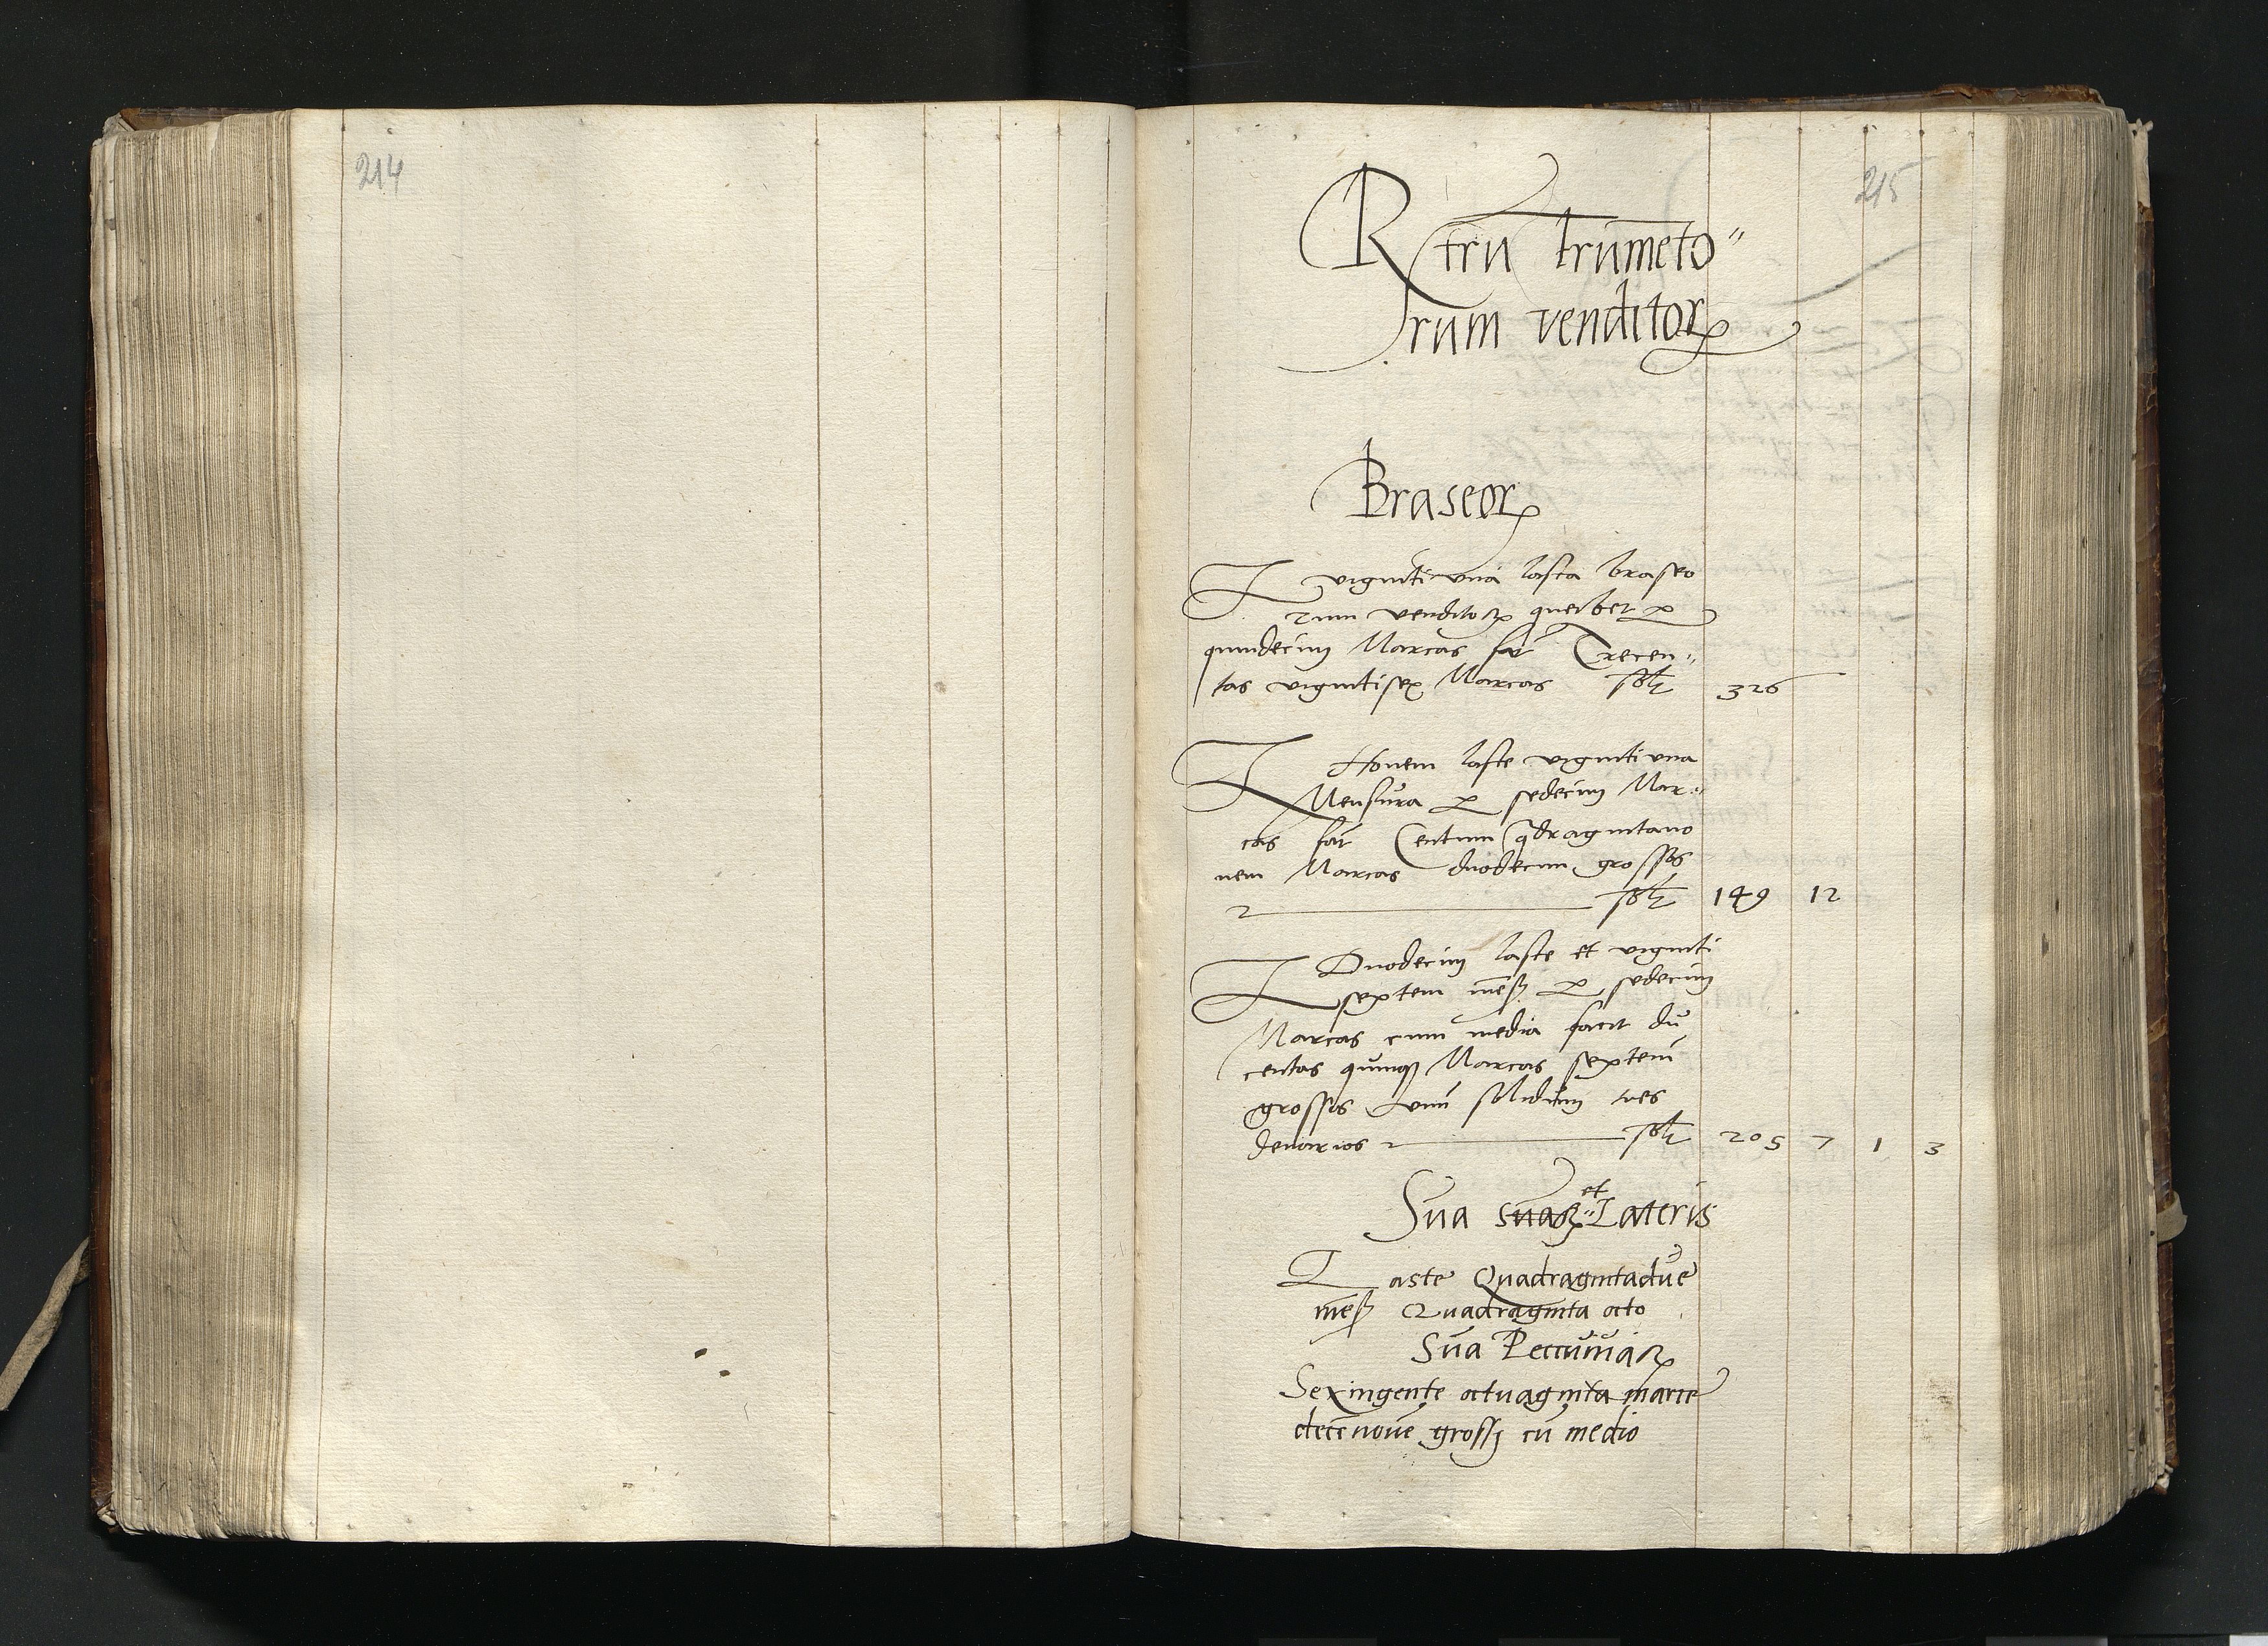 214
215
Rtru trumeto"
rum venditoꝝ
Braseoꝝ
I viginti una lasta braseo
rum venditoꝝ quelibet ꝑ
quindecim Marcas fat Trecen"
tas vigintisex Marcas solꝫ 326
I Novem laste viginti una
Mensura ꝑ sedecim Mar"
cas fat Centum qdragintano
vem Marcas duodecim grossos
solꝫ 149 12
I Duodecim laste et viginti
septem meß ꝑ sedecim
Marcas cum media facit du
centas quinqꝫ Marcas septem
grossos unu solidum tres
denarios solꝫ 205 7 1 3
Sua et Lateris
Laste Quadragintadue
meß Quadraginta octo
Sua Peccuniaꝝ
Sexingente octuaginta marce
decenove grossꝫ cu medio